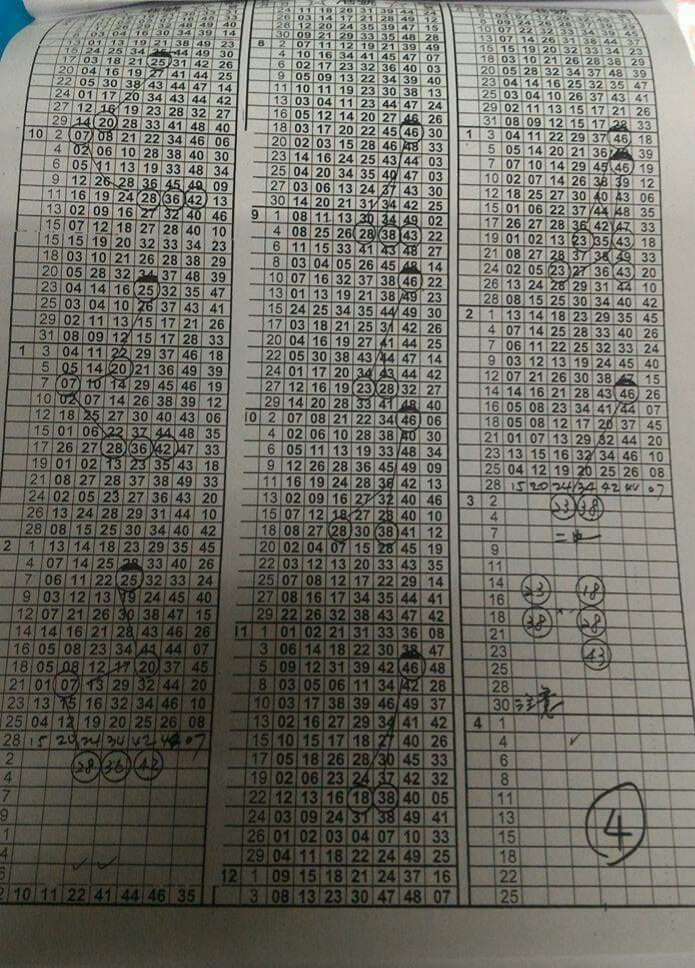 03 04 16 30 34 39 14
13 01 13 19 21 38 49 23
17 03 18 21 25 31 42 26
20 04 16 19 27 41 44 25
22 05 30 38 43 44 47 14
24 01 17 20 34 43 44 42
27 12 16 19 23 28 32 27
29 14 20 28 33 41 48 40
10 2 07 08 21 22 34 46 06
4 02 06 10 28 38 40 30
6 05 11 13 19 33 48 34
9 12 26 28 36 45 49 09
11 16 19 24 28 36 42 13
13 02 09 16 27 32 40 46
15 07 12 18 27 28 40 10
15 15 19 20 32 33 34 23
18 03 10 21 26 28 38 29
20 05 28 32 34 37 48 39
23 04 14 16 25 32 35 47
25 03 04 10 26 37 43 41
29 02 11 13 15 17 21 26
31 08 09 12 15 17 28 33
1 3 04 11 22 29 37 46 18
5 05 14 20 21 36 49 39
7 07 10 14 29 45 46 19
10 02 07 14 26 38 39 12
12 18 25 27 30 40 43 06
15 01 06 22 37 44 48 35
17 26 27 28 36 42 47 33
19 01 02 13 23 35 43 18
21 08 27 28 37 38 49 33
24 02 05 23 27 36 43 20
26 13 24 28 29 31 44 10
28 08 15 25 30 34 40 42
2 1 13 14 18 23 29 35 45
4 07 14 25 28 33 40 26
7 06 11 22 25 32 33 24
9 03 12 13 19 24 45 40
12 07 21 26 30 38 47 15
14 14 16 21 28 43 46 26
16 05 08 23 34 41 44 07
18 05 08 12 17 20 37 45
21 01 07 13 29 32 44 20
23 13 15 16 32 34 46 10
25 04 12 19 20 25 26 08
28 15 20 24 34 42 44 07
2
4 28 36 42
7
9
1
4
6
2 10 11 22 41 44 46 35
24 11 18 26 31 39 44
26 03 14 17 21 28 49 12
28 12 20 24 35 39 47 15
30 09 21 29 33 35 48 28
8 2 07 11 12 19 21 39 49
4 10 16 34 41 45 47 07
6 02 17 23 32 36 40 03
9 05 09 13 22 34 39 40
11 10 11 19 23 30 38 13
13 03 04 11 23 44 47 24
16 05 12 14 20 27 46 26
18 03 17 20 22 45 46 30
20 02 03 15 28 46 48 33
23 14 16 24 25 43 44 03
25 04 20 34 35 40 47 03
27 03 06 13 24 37 43 30
30 14 20 21 31 34 42 25
9 1 08 11 13 30 34 49 02
4 08 25 26 28 38 43 22
6 11 15 33 41 43 48 27
8 03 04 05 26 45 48 14
10 07 16 32 37 38 46 22
13 01 13 19 21 38 49 23
15 24 25 34 35 44 49 30
17 03 18 21 25 31 42 26
20 04 16 19 27 41 44 25
22 05 30 38 43 44 47 14
24 01 17 20 34 43 44 42
27 12 16 19 23 28 32 27
29 14 20 28 33 41 48 40
10 2 07 08 21 22 34 46 06
4 02 06 10 28 38 40 30
6 05 11 13 19 33 48 34
9 12 26 28 36 45 49 09
11 16 19 24 28 36 42 13
13 02 09 16 27 32 40 46
15 07 12 18 27 28 40 10
18 08 27 28 30 38 41 12
20 02 04 07 15 28 45 19
22 03 12 13 20 33 43 35
25 07 08 12 17 22 29 14
27 08 16 17 34 35 44 41
29 22 26 32 38 43 47 42
11 1 01 02 21 31 33 36 08
3 06 14 18 22 30 38 47
5 09 12 31 39 42 46 48
8 03 05 06 11 34 42 28
10 03 17 38 39 46 49 37
13 02 16 27 29 34 41 42
15 10 15 17 18 27 40 26
17 05 18 26 28 30 45 33
19 02 06 23 24 37 42 32
22 12 13 16 18 38 40 05
24 03 09 24 31 38 49 41
26 01 02 03 04 07 10 33
29 04 11 18 22 24 49 25
12 1 09 15 18 21 24 37 16
3 08 13 23 30 47 48 07
10 07 22 32 33 34 39 45
13 07 14 26 31 38 44 37
15 15 19 20 32 33 34 23
18 03 10 21 26 28 38 29
20 05 28 32 34 37 48 39
23 04 14 16 25 32 35 47
25 03 04 10 26 37 43 41
29 02 11 13 15 17 21 26
31 08 09 12 15 17 28 33
1 3 04 11 22 29 37 46 18
5 05 14 20 21 36 49 39
7 07 10 14 29 45 46 19
10 02 07 14 26 38 39 12
12 18 25 27 30 40 43 06
15 01 06 22 37 44 48 35
17 26 27 28 36 42 47 33
19 01 02 13 23 35 43 18
21 08 27 28 37 38 49 33
24 02 05 23 27 36 43 20
26 13 24 28 29 31 44 10
28 08 15 25 30 34 40 42
2 1 13 14 18 23 29 35 45
4 07 14 25 28 33 40 26
7 06 11 22 25 32 33 24
9 03 12 13 19 24 45 40
12 07 21 26 30 38 15
14 14 16 21 28 43 46 26
16 05 08 23 34 41 44 07
18 05 08 12 17 20 37 45
21 01 07 13 29 32 44 20
23 13 15 16 32 34 46 10
25 04 12 19 20 25 26 08
28 15 20 24 34 42 44 07
3 2 23 38
4
7 二中一
9
11
14 23 18
16
18 38 28
21
23 43
25
28
30 注意
4 1
4
6
8
11
13 4
15
18
22
25